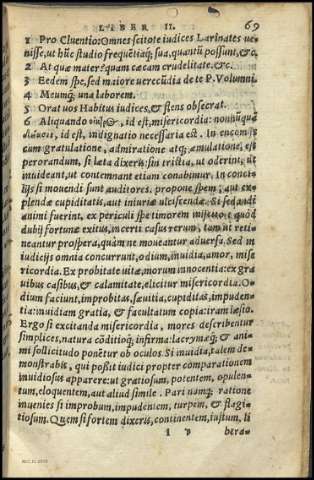 LIBER II. 69
1 Pro Cluentio: Omnes scitote iudices Larinates ue-
nisse, ut hūc studio frequētiaq; sua, quantū possunt, &c.
2 At quæ mater? quam cæcam crudelitate. &c.
3 Eedem spe, sed maiore uerecūdia de te P. Volumni.
4 Meumq; una laborem.
5 Orat uos Habitus iudices, & flens obsecrat.
6 Aliquando id est, misericordia: nonnūquā
id est, indignatio necessaria est. In encom
cum gratulatione, admiratione atq; æmulatione, est
perorandum, si læta dixeris: sin tristia, ut oderint, ut
inuideant, ut contemnant etiam conabimur. In conci-
ijs si mouendi sunt auditores, propone spem, aut ex-
plendæ cupiditatis, aut iniuriæ ulciscendæ. Si sedandi
animi fuerint, ex periculi spe timorem quòd
dubij fortunæ exitus, incerti casus rerum, tam ut reti-
neantur prospera, quàm ne moueantur aduersa. Sed in
iudicijs omnia concurrunt, odium, inuidia, amor, mise
ricordia. Ex probitate uitæ, morum innocentia: ex gra
uibus casibus, & calamitate, elicitur misericordia. O-
dium faciunt, improbitas, sæuitia, cupiditas, impuden-
tia: inuidiam gratia, & facultatum copia: iram læsio.
Ergo si excitanda misericordia, mores describentur
simplices, natura cōditioq; infirma: lacrymæq; & ani-
mi sollicitudo ponētur ob oculos. Si inuidia, talem de-
monstrabis, qui possit iudici propter comparationem
inuidiosus apparere: ut gratiosum, potentem, opulen-
tum, eloquentem, aut aliud simile. Pari namq; ratione
inuenies si improbum, impudentem, turpem, & flagi-
tiosum. Quem si fortem dixeris, continentem, iustum, li
bera-